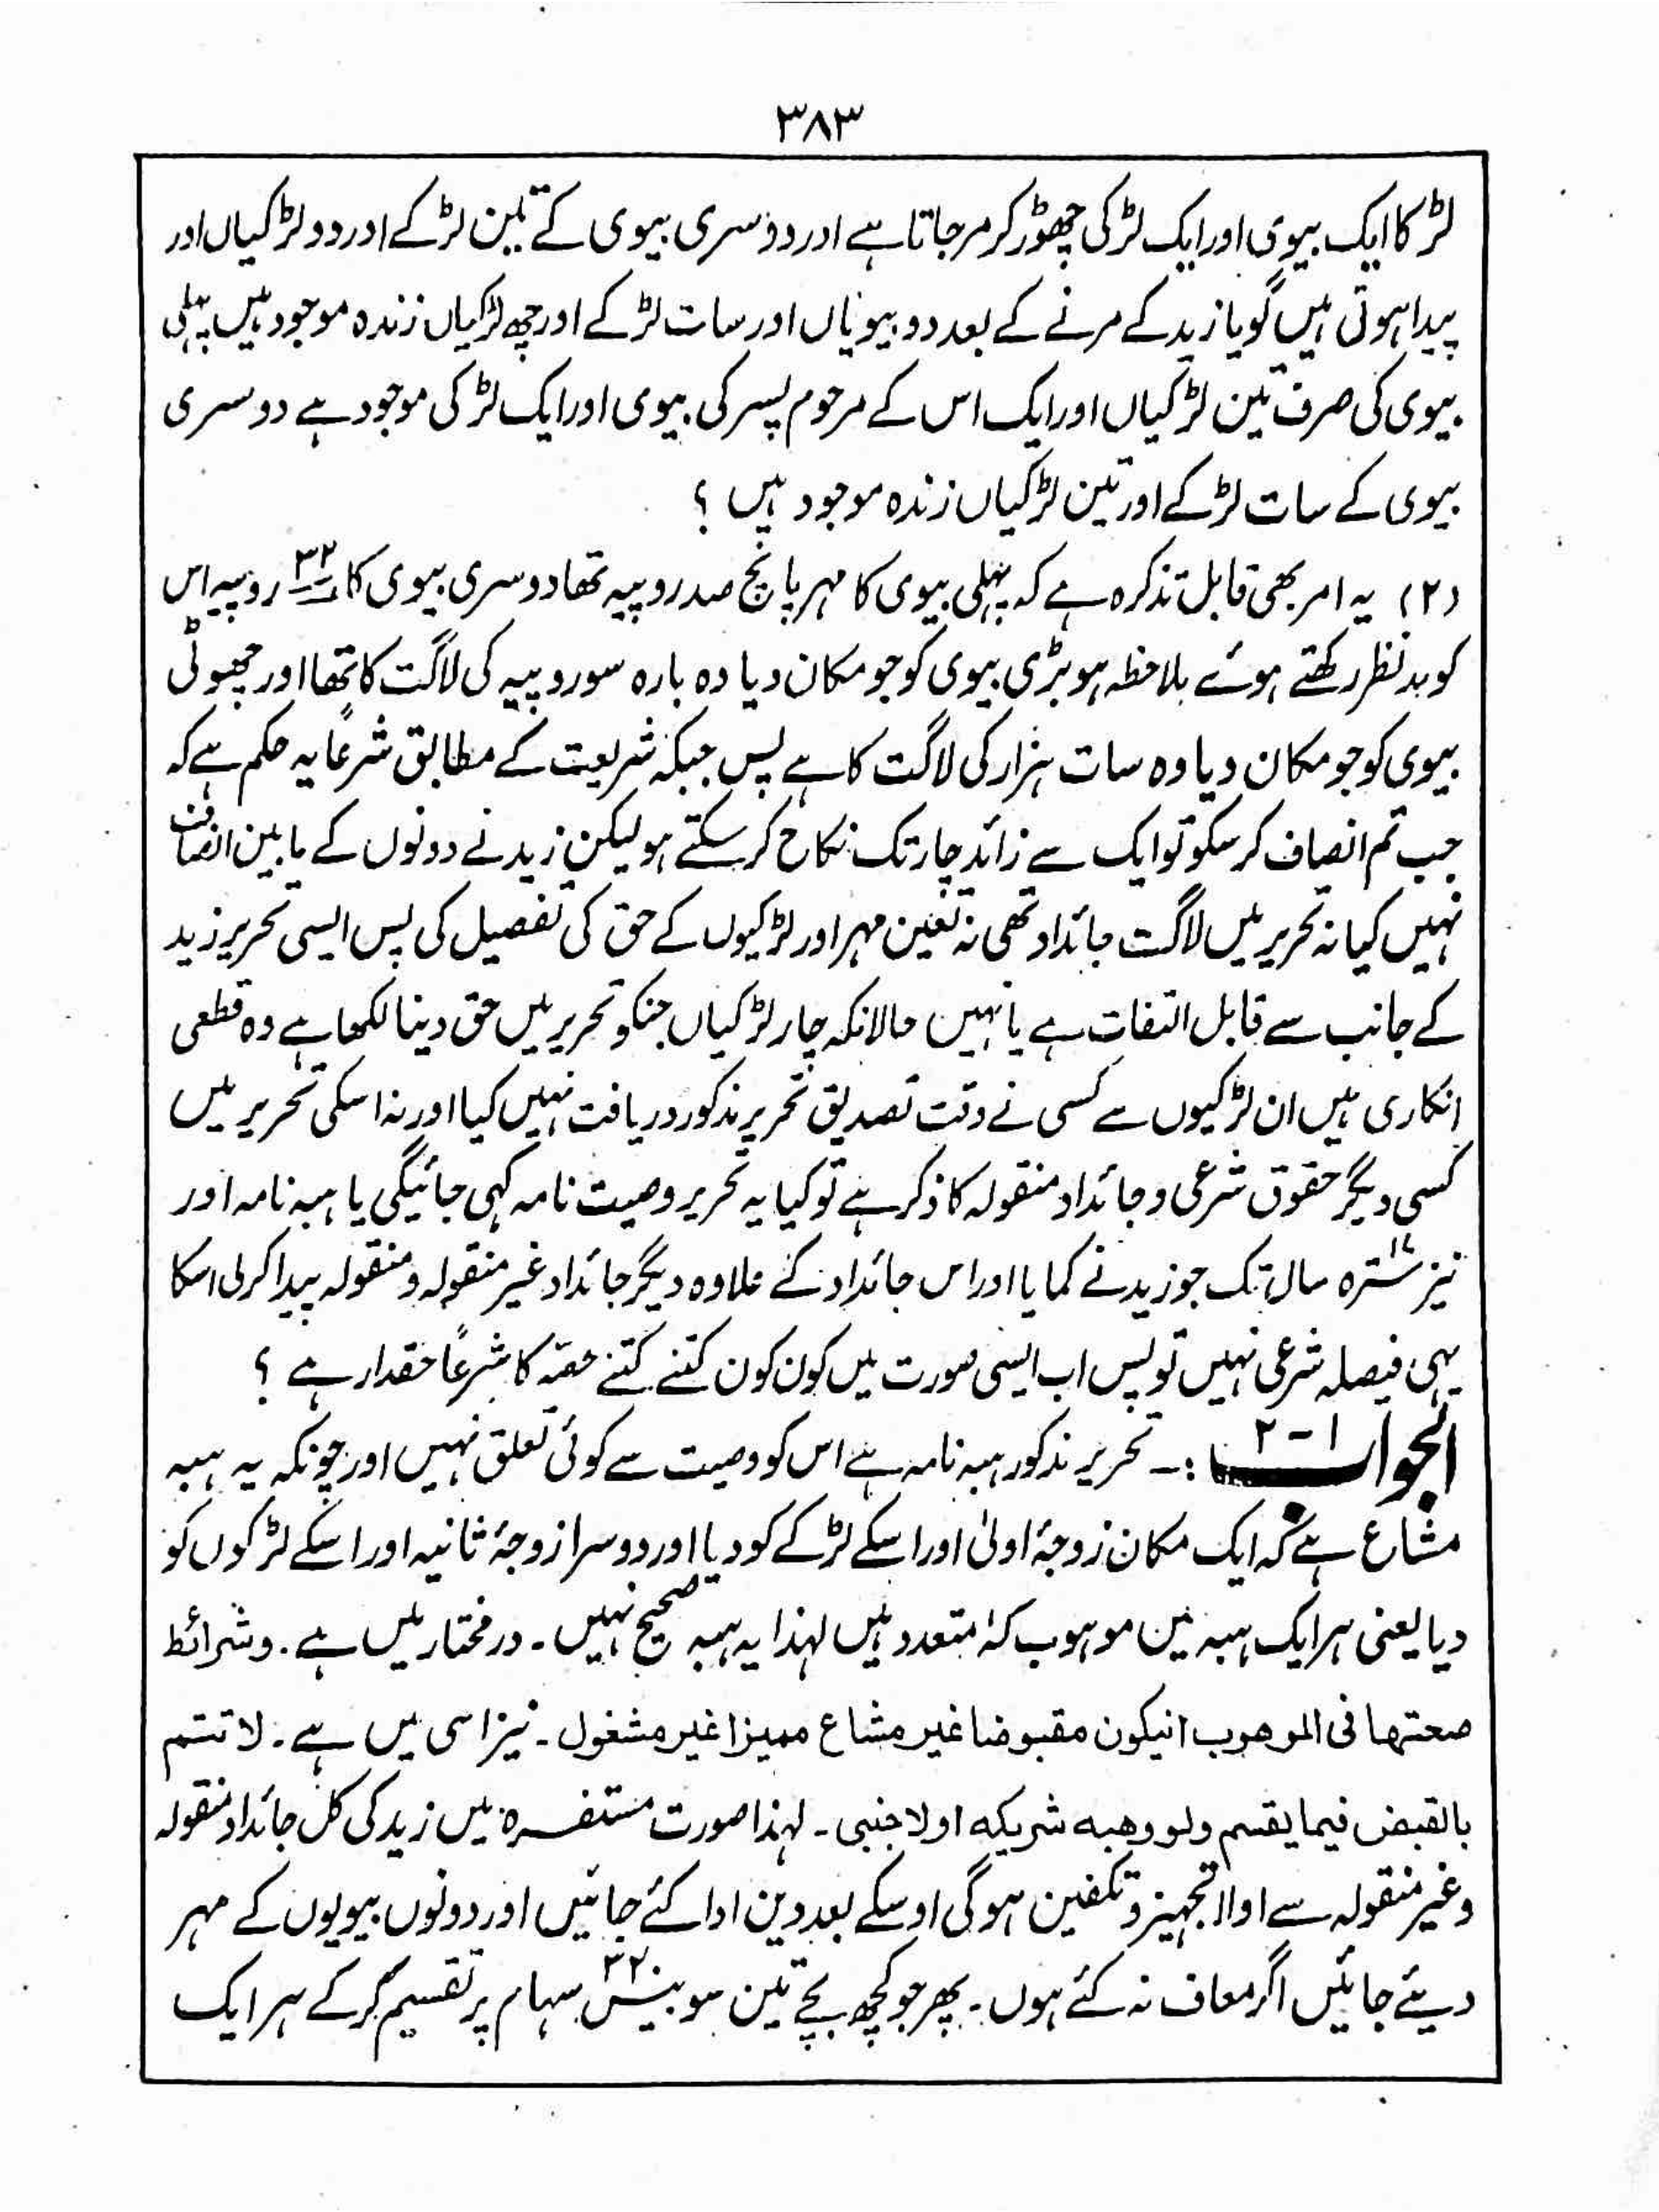 ۳۸۳
لڑکا ایک بیوی اور ایک لڑکی چھوڑ کر مرجاتا ہے اور دوسری بیوی کے تین لڑکے اور دو لڑکیاں اور
پیدا ہوتی ہیں گویا زید کے مرنے کے بعد دو بیویاں اور سات لڑکے اور چھ لڑکیاں زندہ موجود ہیں پہلی
بیوی کی صرف تین لڑکیاں اور ایک اس کے مرحوم پسر کی بیوی اور ایک لڑکی موجود ہے دوسری
بیوی کے سات لڑکے اور تین لڑکیاں زندہ موجود ہیں ؟
(۲) یہ امر بھی قابل تذکرہ ہے کہ پہلی بیوی کا مہر پانچ صد روپیہ تھا دوسری بیوی کا ۳۲ روپیہ اس
کو مدنظر رکھتے ہوئے ملاحظہ ہو بڑی بیوی کو جو مکان دیا وہ بارہ سو روپیہ کی لاگت کا تھا اور چھوٹی
بیوی کو جو مکان دیا وہ سات ہزار کی لاگت کا ہے پس جبکہ شریعت کے مطابق شرعًا یہ حکم ہے کہ
جب تم انصاف کر سکو تو ایک سے زائد چار تک نکاح کر سکتے ہو لیکن زید نے دونوں کے مابین انصاف
نہیں کیا نہ تحریر میں لاگت جائداد تھی نہ تعین مہر اور لڑکیوں کے حق کی تفصیل کی پس ایسی تحریر زید
کے جانب سے قابل التفات ہے یا نہیں حالانکہ چار لڑکیاں جنکو تحریر میں حق دینا لکھا ہے وہ قطعی
انکاری ہیں ان لڑکیوں سے کسی نے وقت تصدیق تحریر مذکور دریافت نہیں کیا اور نہ اسکی تحریر میں
کسی دیگر حقوق شرعی و جائداد منقولہ کا ذکر ہے تو کیا یہ تحریر وصیت نامہ کہی جائیگی یا ہبہ نامہ اور
نیز ۱۷ سترہ سال تک جو زید نے کمایا اور اس جائداد کے علاوہ دیگر جائداد غیر منقولہ و منقولہ پیدا کرلی اسکا
یہی فیصلہ شرعی نہیں تو پس اب ایسی صورت میں کون کون کتنے کتنے حصّہ کا شرعًا حقدار ہے ؟
الجواب ۱ - ۲ :۔ تحریر مذکور ہبہ نامہ ہے اس کو وصیت سے کوئی تعلق نہیں اور چونکہ یہ ہبہ
مشاع ہے کہ ایک مکان زوجۂ اولیٰ اور اسکے لڑکے کو دیا اور دوسرا زوجۂ ثانیہ اور اسکے لڑکوں کو
دیا یعنی ہر ایک ہبہ میں موہوب لہٗ متعدد ہیں لہذا یہ ہبہ صحیح نہیں ۔ درمختار میں ہے ۔ وشرائط
صحتہا فی الموھوب انیکون مقبوضا غیر مشاع ممیزا غیر مشغول ۔ نیز اسی میں ہے ۔ لا تتم
بالقبض فیما یقسم ولو وھبہ شریکہ اولا جنبی ۔ لہذا صورت مستفسرہ میں زید کی کل جائداد منقولہ
وغیر منقولہ سے اولا تجہیز و تکفین ہوگی اوسکے بعد دین ادا کئے جائیں اور دونوں بیویوں کے مہر
دیئے جائیں اگر معاف نہ کئے ہوں ۔ پھر جو کچھ بچے تین سو بیس ۳۲۰ سہام پر تقسیم کرکے ہر ایک